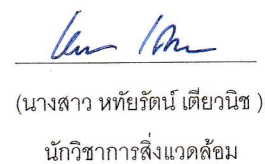 (นางสาว หทัยรัตน์ เตียวนิช )
นักวิชาการสิ่งแวดล้อม